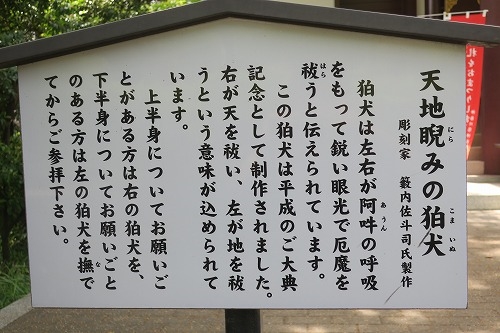 天地睨みの狛犬
彫刻家 籔内佐斗司氏製作
狛犬は左右が阿吽の呼吸
をもって鋭い眼光で厄魔を
祓うと伝えられています。
この狛犬は平成のご大典
記念として制作されました。
右が天を祓い、左が地を祓
うという意味が込められて
います。
上半身についてお願いご
とがある方は右の狛犬を、
下半身についてお願いごと
のある方は左の狛犬を撫で
てからご参拝下さい。